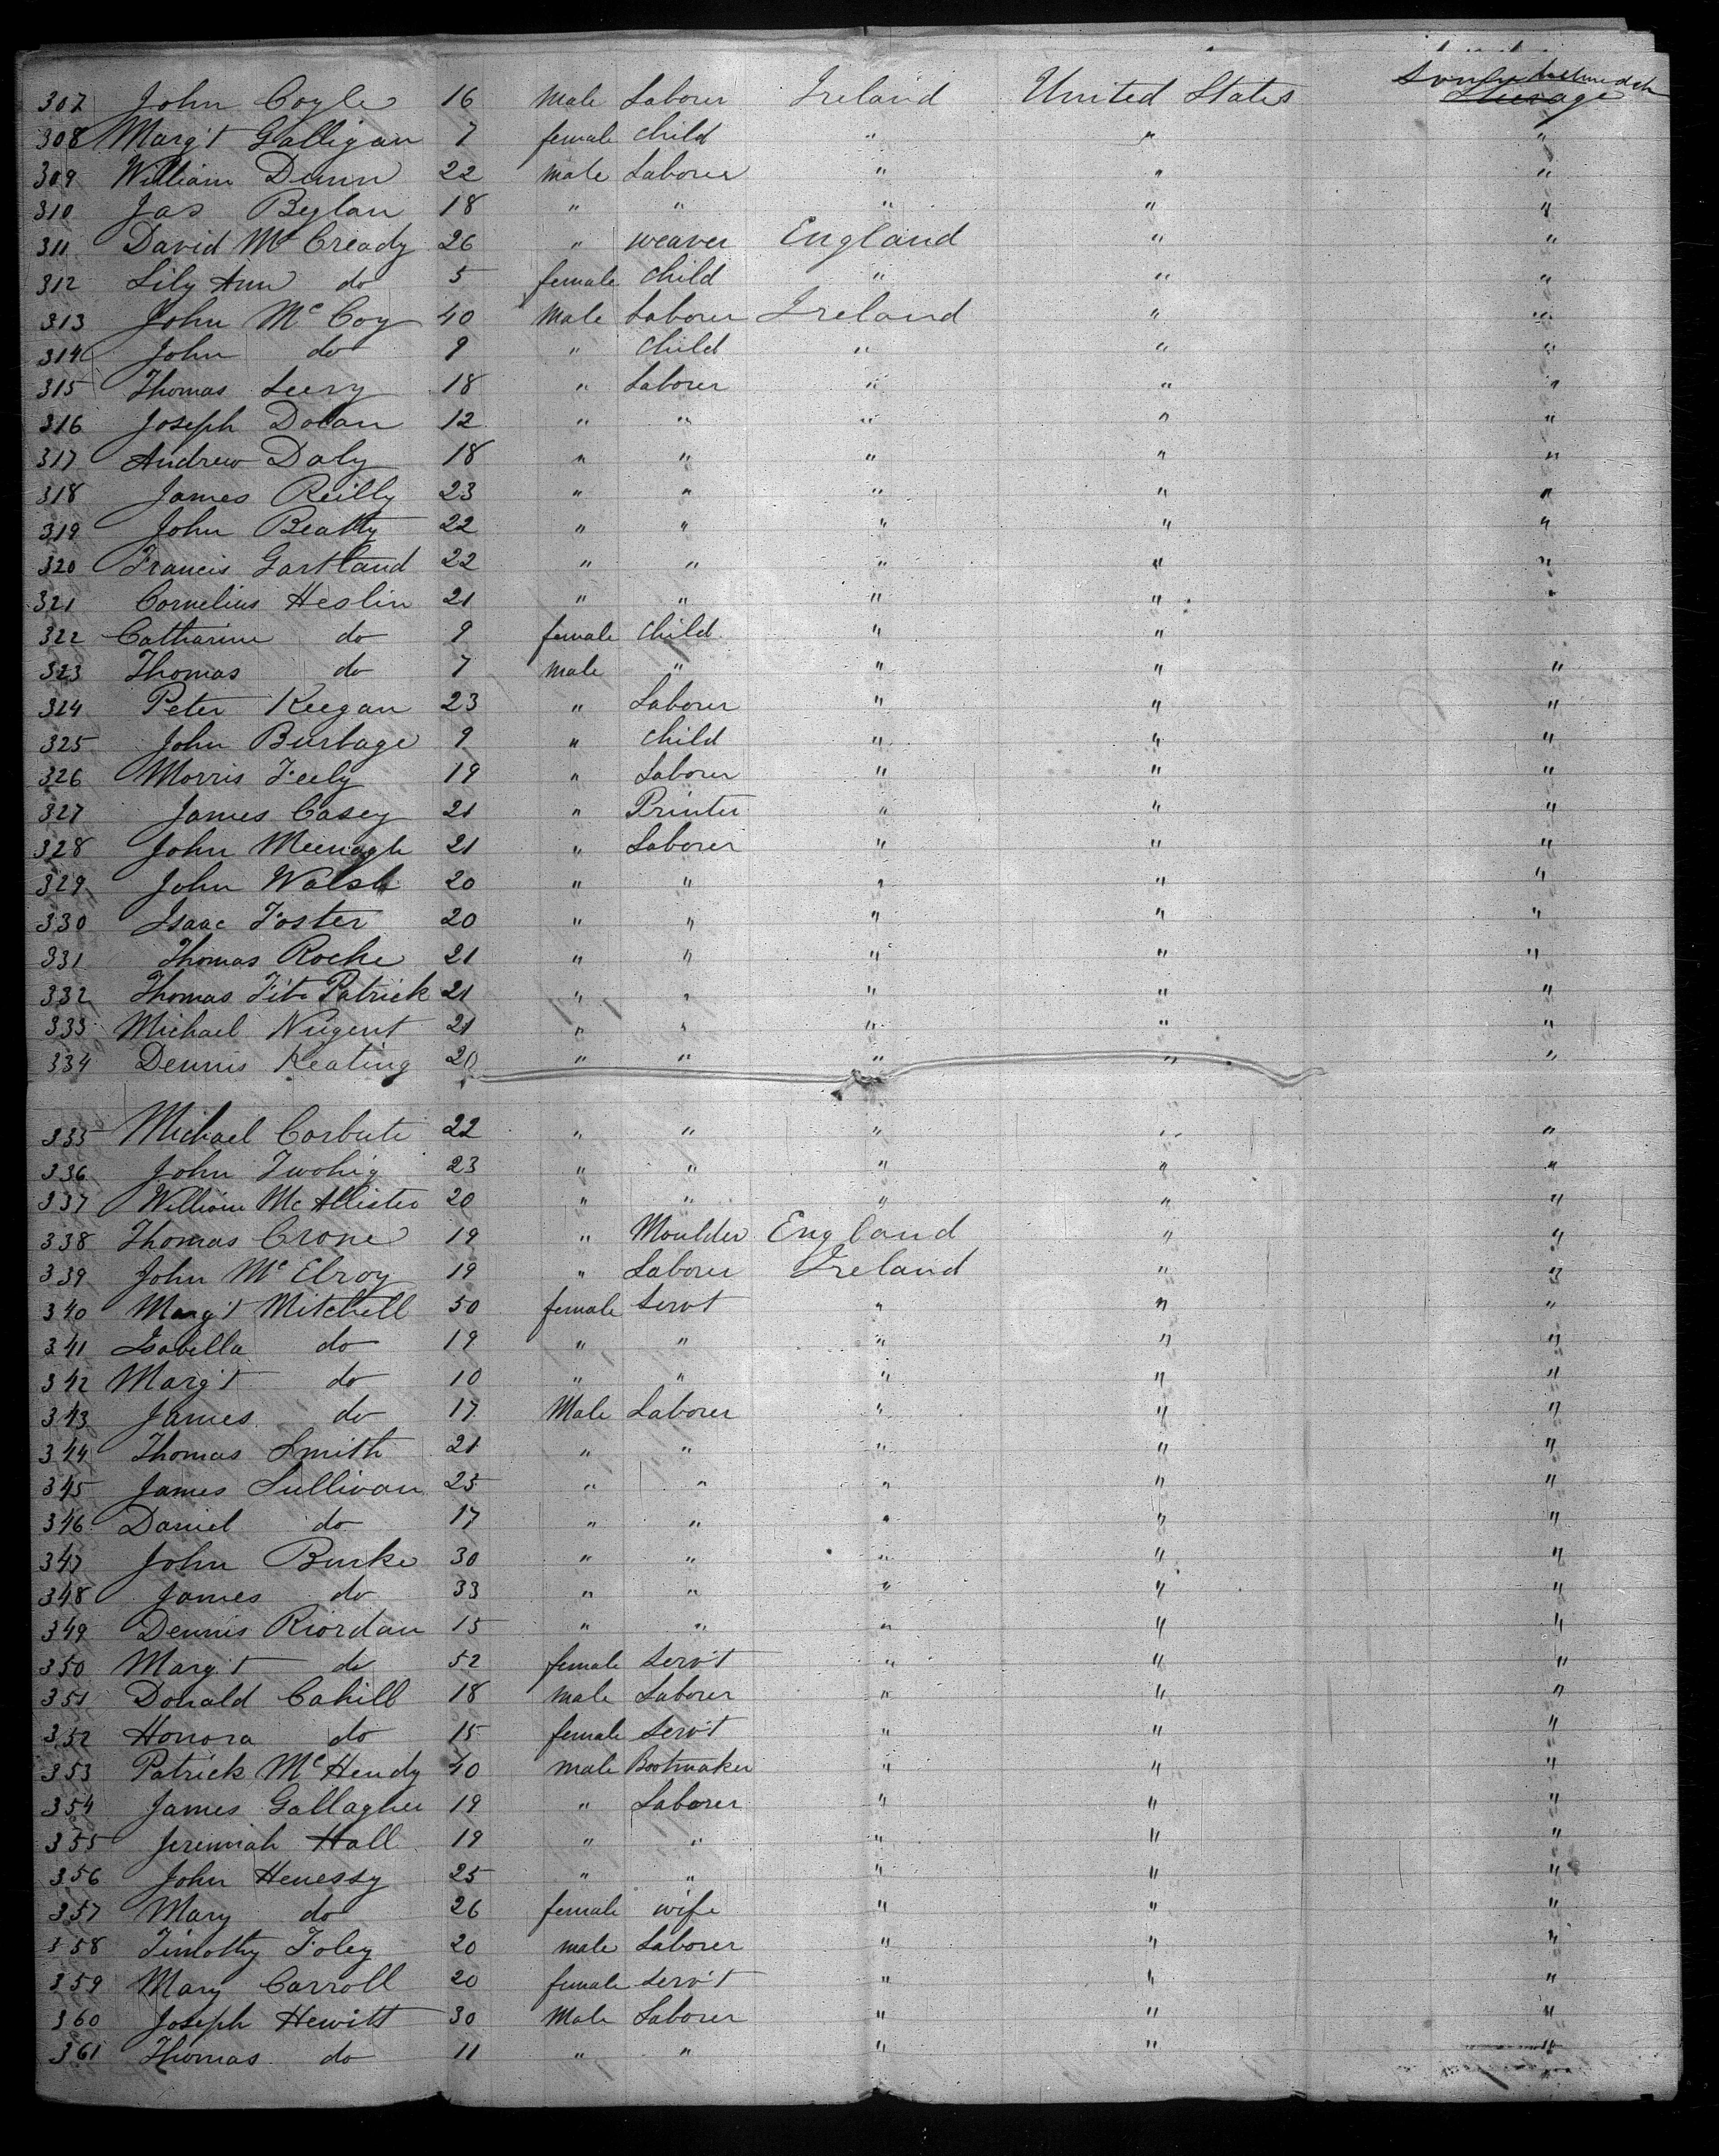 307 John Coyle 16 Male Laborer Ireland United States Steerage
308 Marg't Galligan 7 female child " " "
309 William Dunn 22 male Laborer " " "
310 Jas Beglan 18 " " " " "
311 David McCready 26 " weaver England " "
312 Lily Ann do 5 female child " " "
313 John McCoy 40 Male Laborer Ireland " "
314 John do 9 " child " " "
315 Thomas Leery 18 " Laborer " " "
316 Joseph Dolan 12 " " " " "
317 Andrew Daly 18 " " " " "
318 James Reilly 23 " " " " "
319 John Beatty 22 " " " " "
320 Francis Gartland 22 " " " " "
321 Cornelius Heslin 21 " " " " "
322 Catharine do 9 female child " "
323 Thomas do 7 male " " " "
324 Peter Keegan 23 " Laborer " " "
325 John Burbage 9 " child " " "
326 Morris Feely 19 " Laborer " " "
327 James Casey 21 " Printer " " "
328 John Meenagh 21 " Laborer " " "
329 John Walsh 20 " " " " "
330 Isaac Foster 20 " " " " "
331 Thomas Roche 21 " " " " "
332 Thomas Fitz Patrick 21 " " " " "
333 Michael Nugent 21 " " " " "
334 Dennis Keating 20 " " " " "
335 Michael Corbett 22 " " " " "
336 John Twohig 23 " " " " "
337 William McAllister 20 " " " " "
338 Thomas Crone 19 " Moulder England " "
339 John McElroy 19 " Laborer Ireland " "
340 Marg't Mitchell 50 female Servt " " "
341 Isabella do 19 " " " " "
342 Marg't do 10 " " " " "
343 James do 17 Male Laborer " " "
344 Thomas Smith 21 " " " " "
345 James Sullivan 25 " " " " "
346 Daniel do 17 " " " " "
347 John Burke 30 " " " " "
348 James do 33 " " " " "
349 Dennis Riordan 15 " " " " "
350 Marg't do 52 female Serv't " " "
351 Donald Cahill 18 male Laborer " " "
352 Honora do 15 female Serv't " " "
353 Patrick McHendy 40 male Bootmaker " " "
354 James Gallagher 19 " Laborer " " "
355 Jeremiah Hall 19 " " " " "
356 John Henessy 25 " " " " "
357 Mary do 26 female wife " " "
358 Timothy Foley 20 male Laborer " " "
359 Mary Carroll 20 female Serv't " " "
360 Joseph Hewitt 30 Male Laborer " " "
361 Thomas do 11 " " " " "